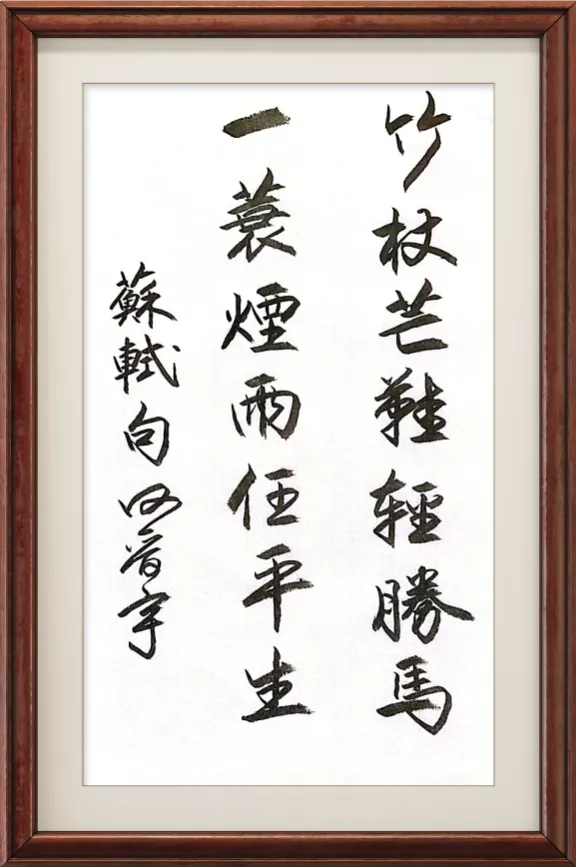 竹杖芒鞋輕勝馬
一蓑煙雨任平生
蘇軾句